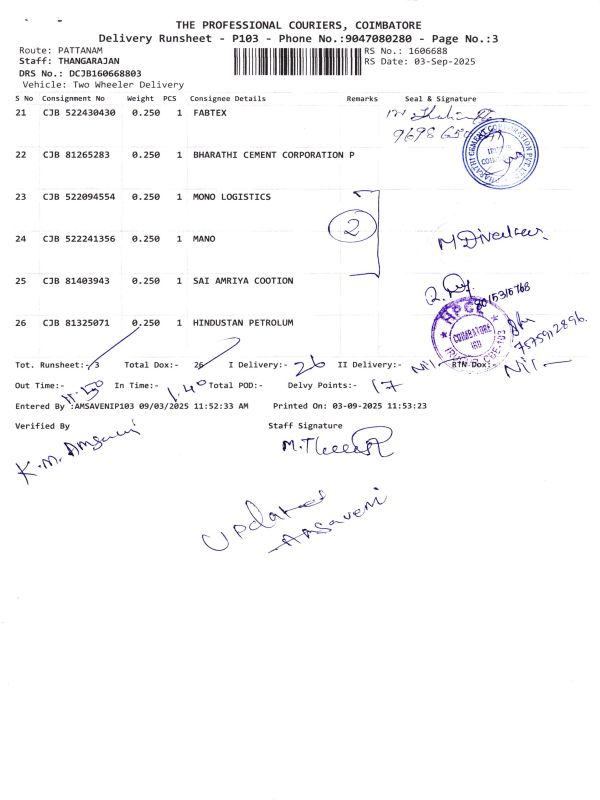 THE PROFESSIONAL COURIERS, COIMBATORE
Delivery Runsheet - P103 - Phone No.:9047080280 - Page No.:3
Route: PATTANAM RS No.: 1606688
Staff: THANGARAJAN RS Date: 03-Sep-2025
DRS No.: DCJB160668803
Vehicle: Two Wheeler Delivery
S No Consignment No Weight PCS Consignee Details Remarks Seal & Signature
21 CJB 522430430 0.250 1 FABTEX
22 CJB 81265283 0.250 1 BHARATHI CEMENT CORPORATION P
23 CJB 522094554 0.250 1 MONO LOGISTICS
2
24 CJB 522241356 0.250 1 MANO
M Divakar
25 CJB 81403943 0.250 1 SAI AMRIYA COOTION
9015315768
26 CJB 81325071 0.250 1 HINDUSTAN PETROLUM
HPCL
COIMBATORE
7575912896
Tot. Runsheet:- 3 Total Dox:- 26 I Delivery:- 26 II Delivery:- Nil RTN Dox:- Nil
Out Time:- 11.50 In Time:- 1.40 Total POD:- Delvy Points:- 17
Entered By :AMSAVENIP103 09/03/2025 11:52:33 AM Printed On: 03-09-2025 11:53:23
Verified By Staff Signature
K.M. Amsaveni
Updated
Amsaveni